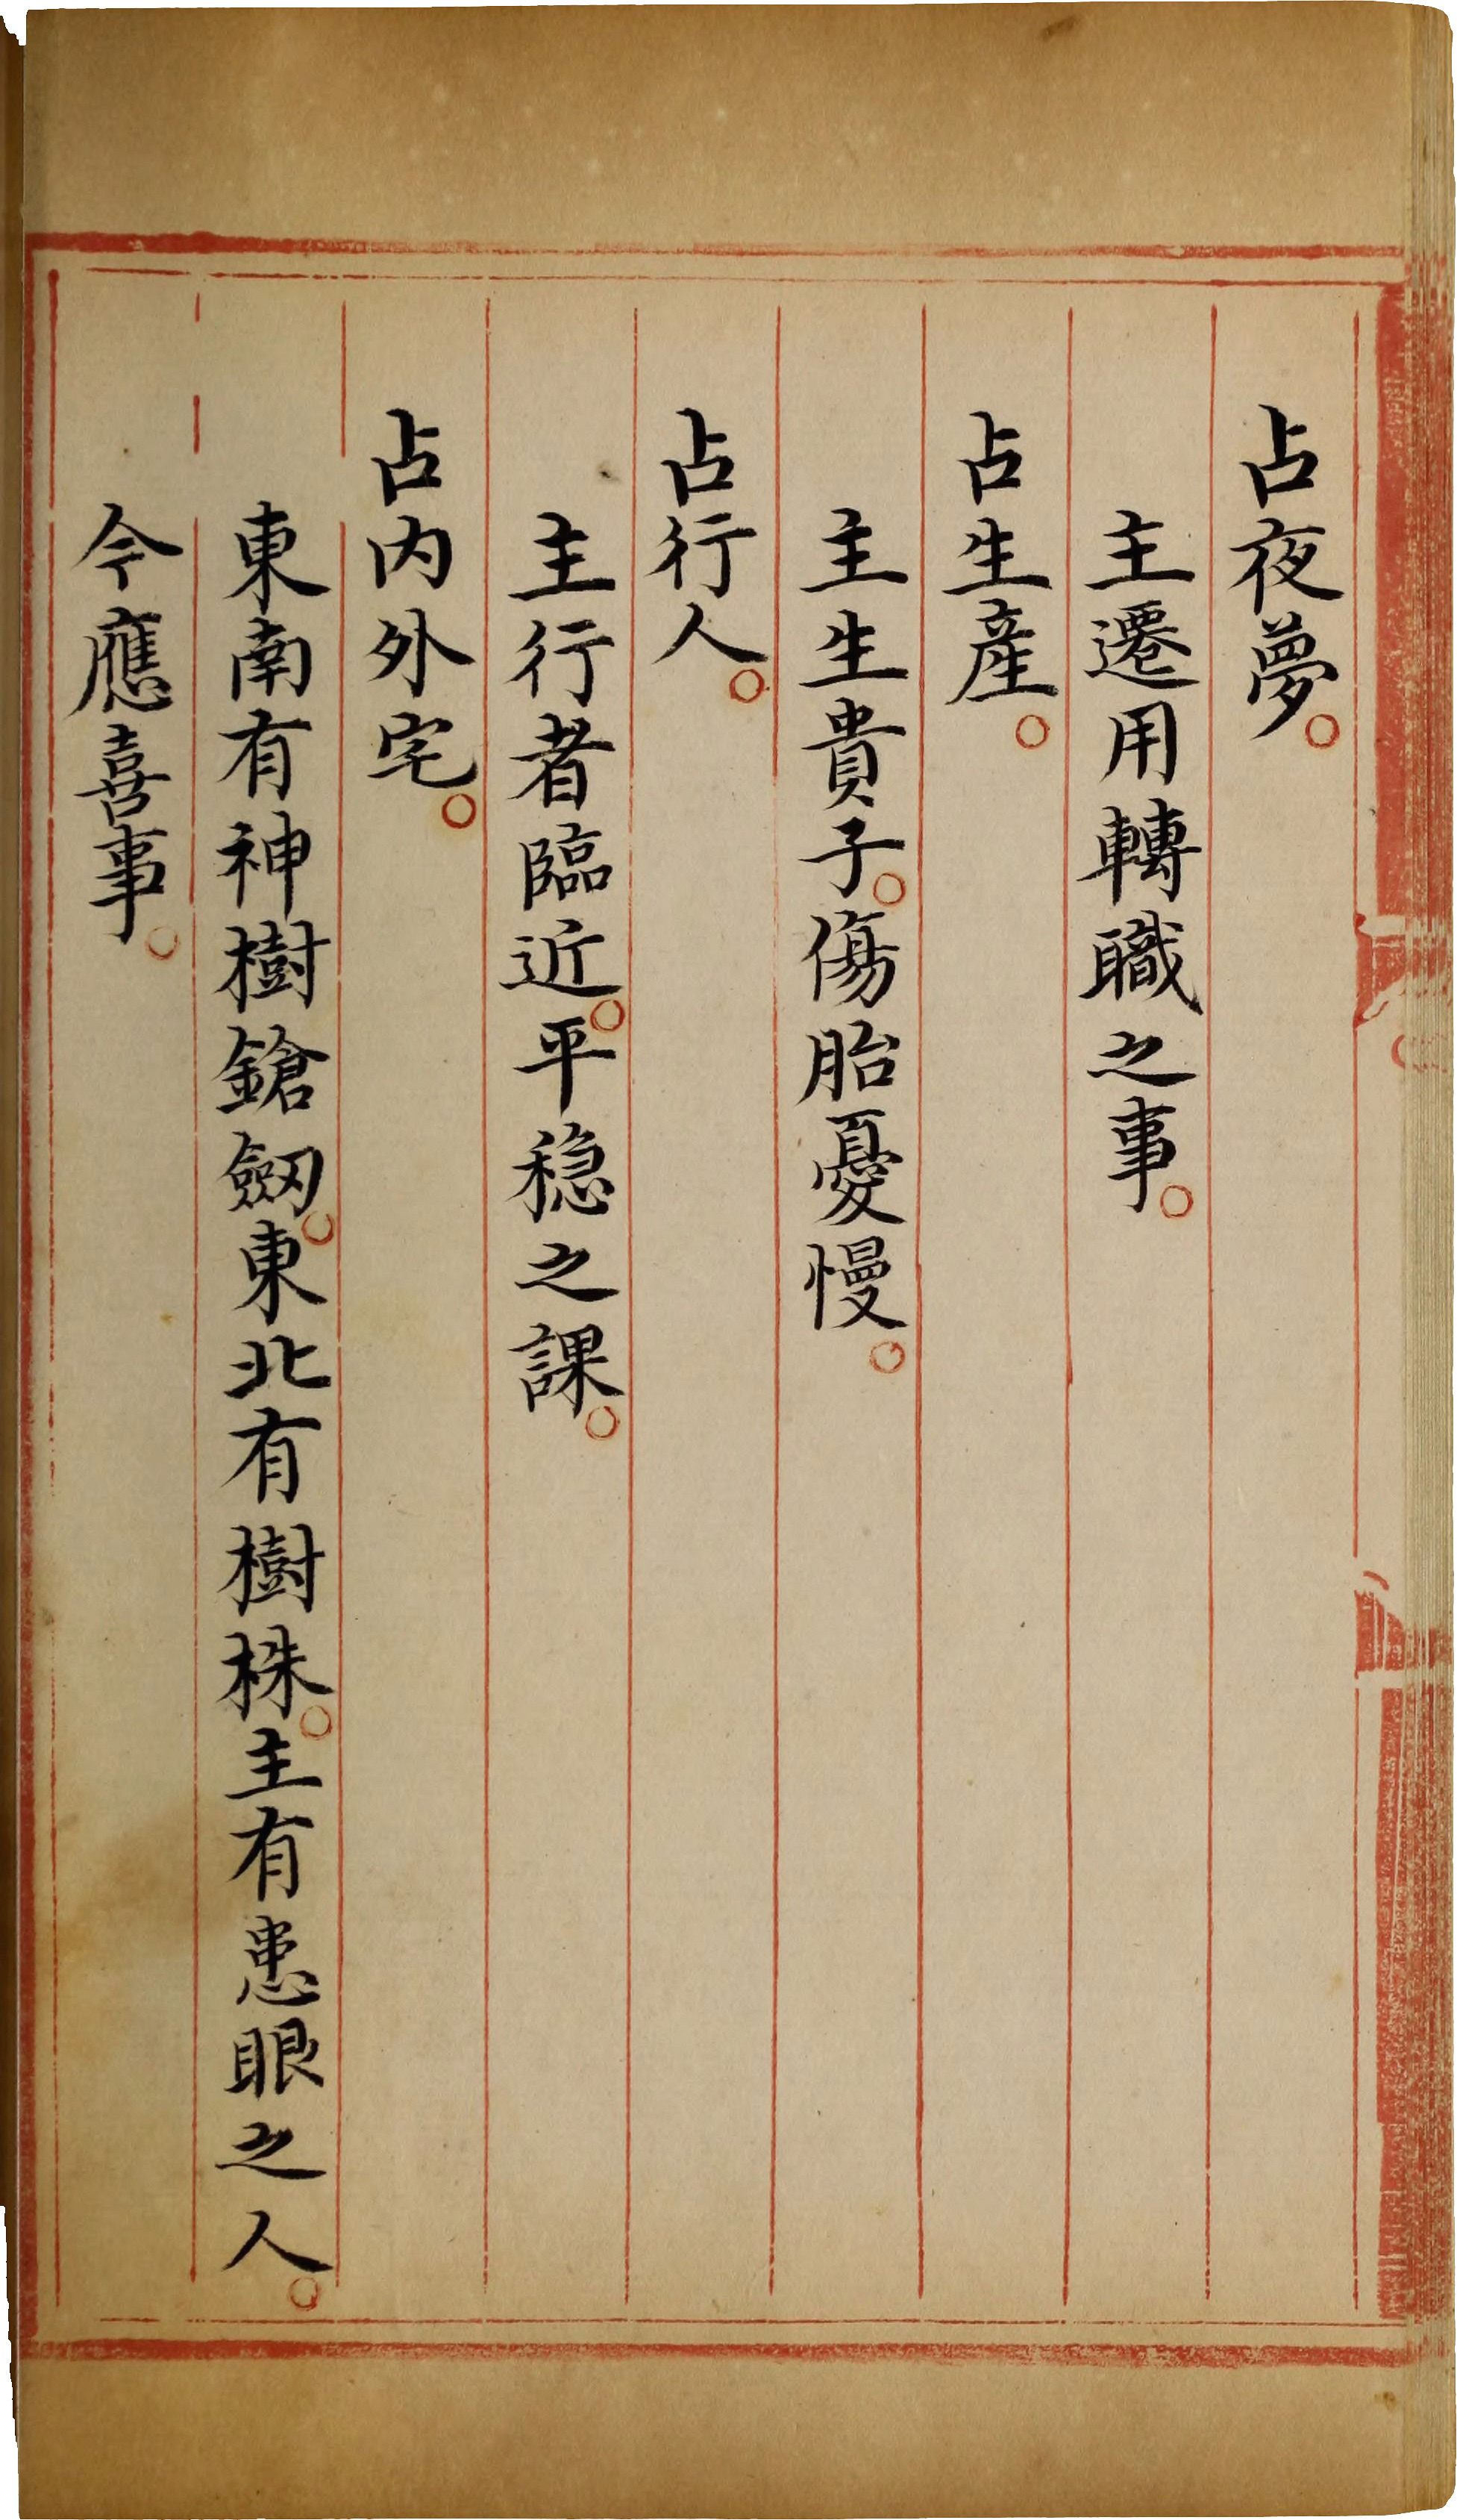 占夜夢。
主遷用轉職之事。
占生產。
主生貴子。傷胎憂慢。
占行人。
主行者臨近。平穏之課。
占內外宅。
東南有神樹鎗劔。東北有樹株。主有患眼之人。
今應喜事。